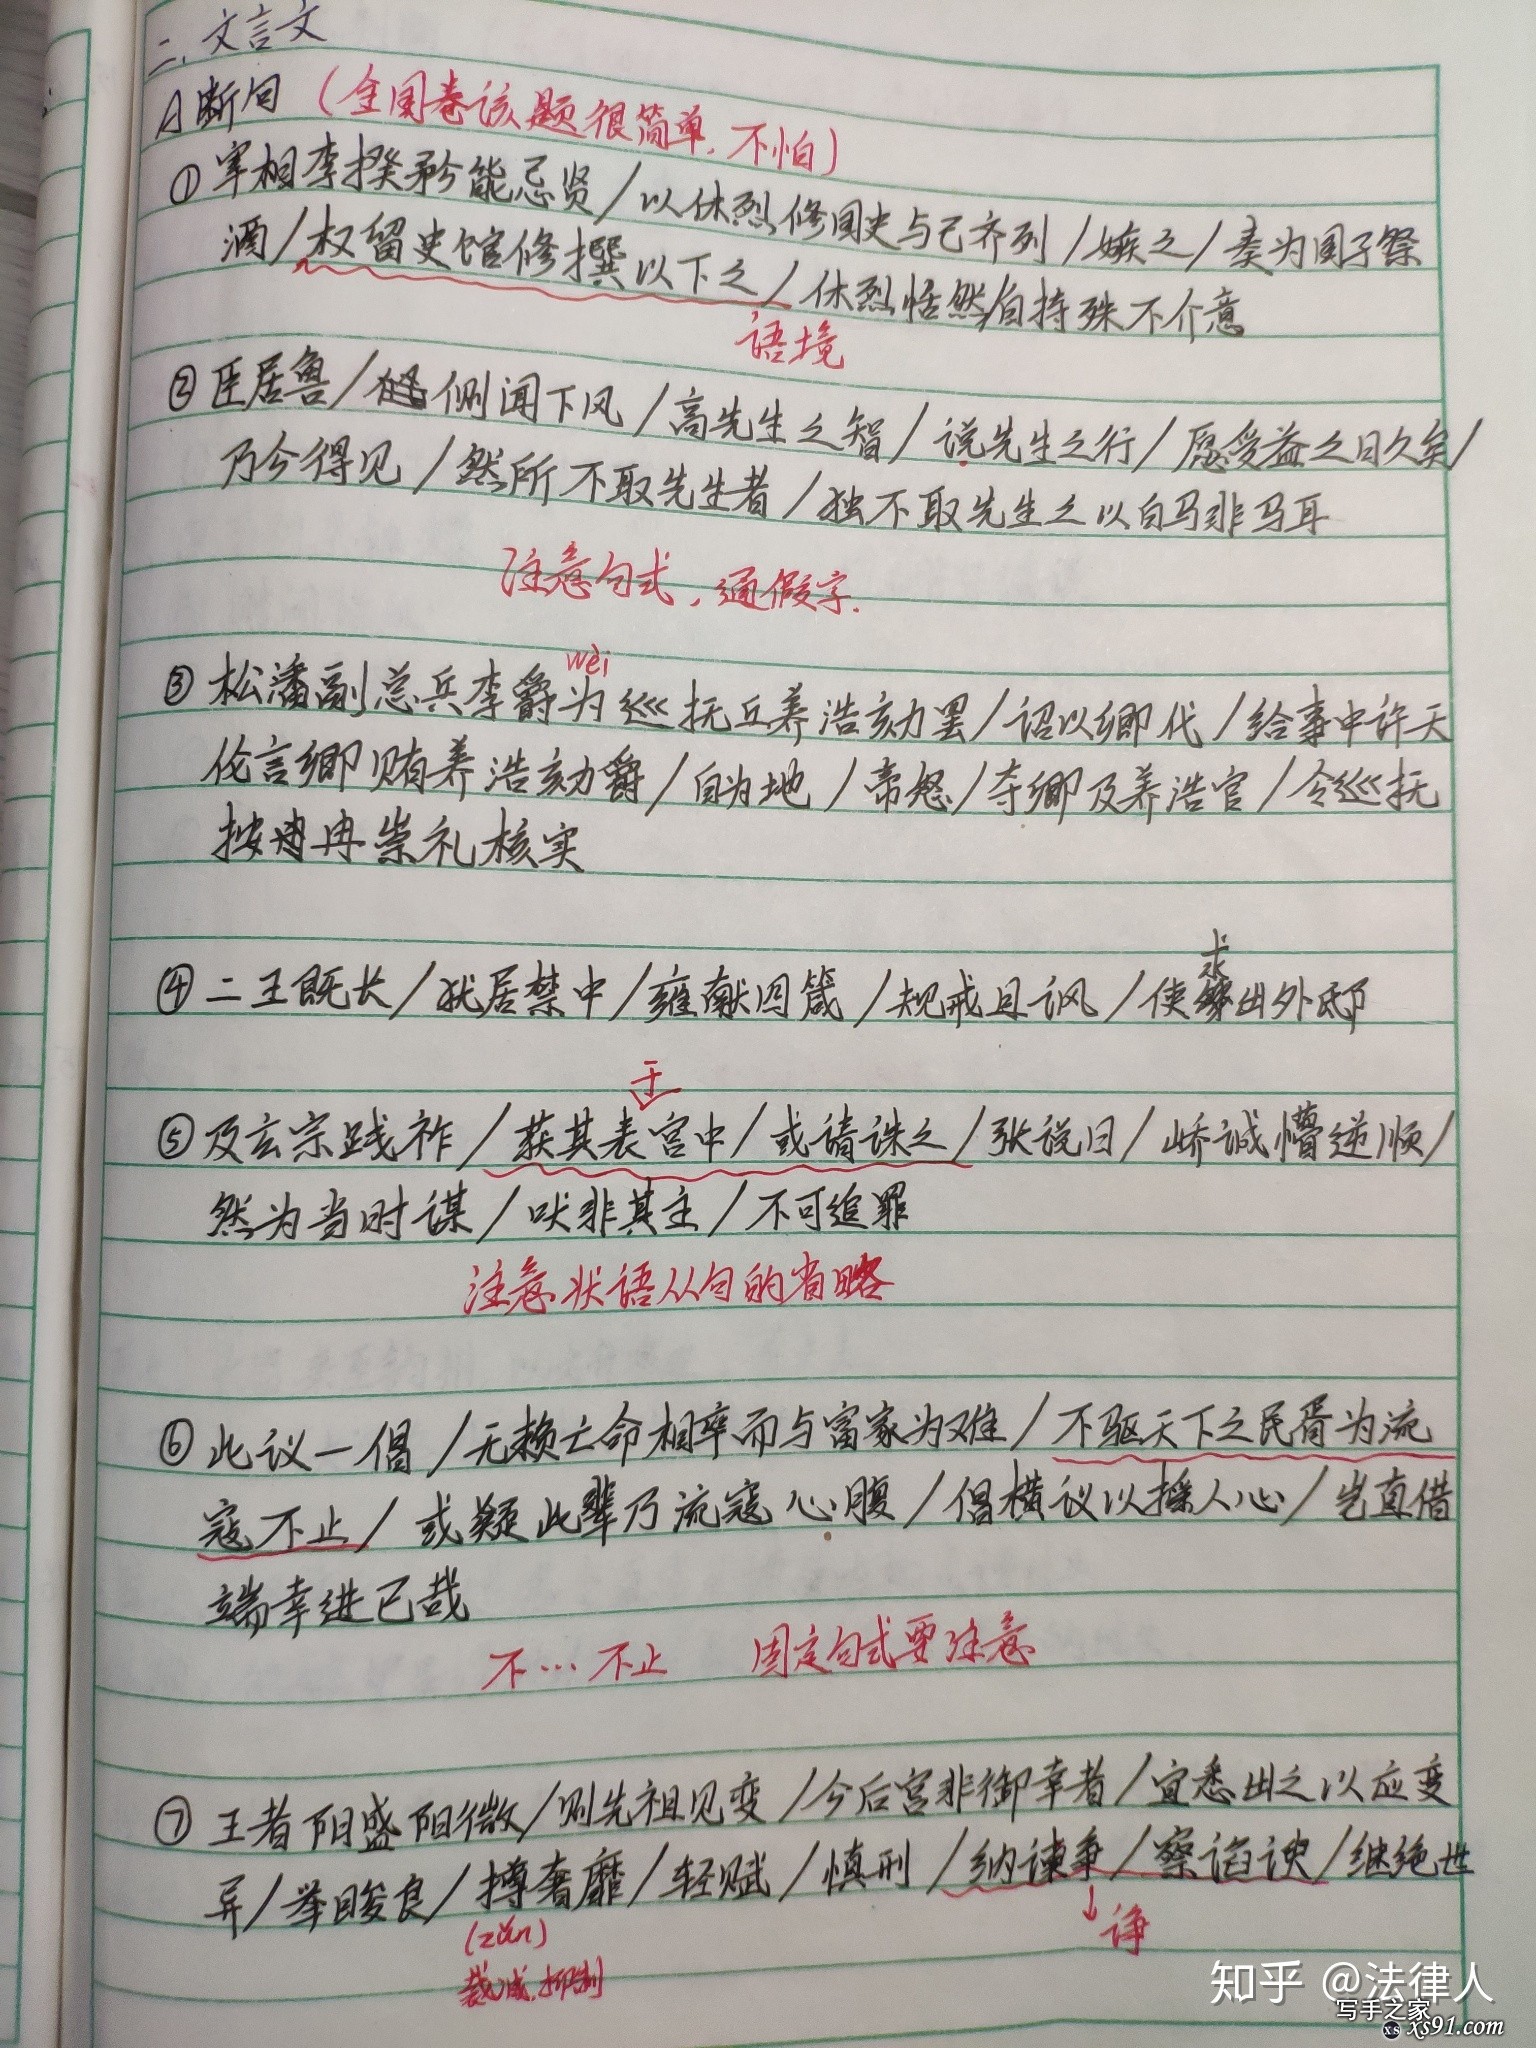 二、文言文
A断句（全国卷该题很简单,不怕）
①宰相李揆矜能忌贤/以休烈修国史与己齐列/嫉之/奏为国子祭
酒/权留史馆修撰以下之/休烈恬然自持殊不介意
语境
②臣居鲁/侧闻下风/高先生之智/说先生之行/愿受益之日久矣/
乃今得见/然所不取先生者/独不取先生之以白马非马耳
注意句式,通假字.
wèi
③松潘副总兵李爵为巡抚丘养浩劾罢/诏以卿代/给事中许天
伦言卿贿养浩劾爵/自为地/帝怒/夺卿及养浩官/令巡抚
按冉崇礼核实
求
④二王既长/犹居禁中/雍献四箴/规戒且讽/使出外邸
于
⑤及玄宗践祚/获其表宫中/或请诛之/张说曰/峤诚懵逆顺/
然为当时谋/吠非其主/不可追罪
注意状语从句的省略
⑥此议一倡/无赖亡命相率而与富家为难/不驱天下之民胥为流
寇不止/或疑此辈乃流寇心腹/倡横议以摇人心/岂直借
端幸进已哉
不…不止 固定句式要注意
⑦王者阴盛阳微/则先祖见变/今后宫非御幸者/宜悉出之以应变
异/举畯良/撙奢靡/轻赋/慎刑/纳谏争/察谄谀/继绝世
(zǔn)
诤
裁减,抑制
知乎 @法律人
写手之家
xs xs91.com